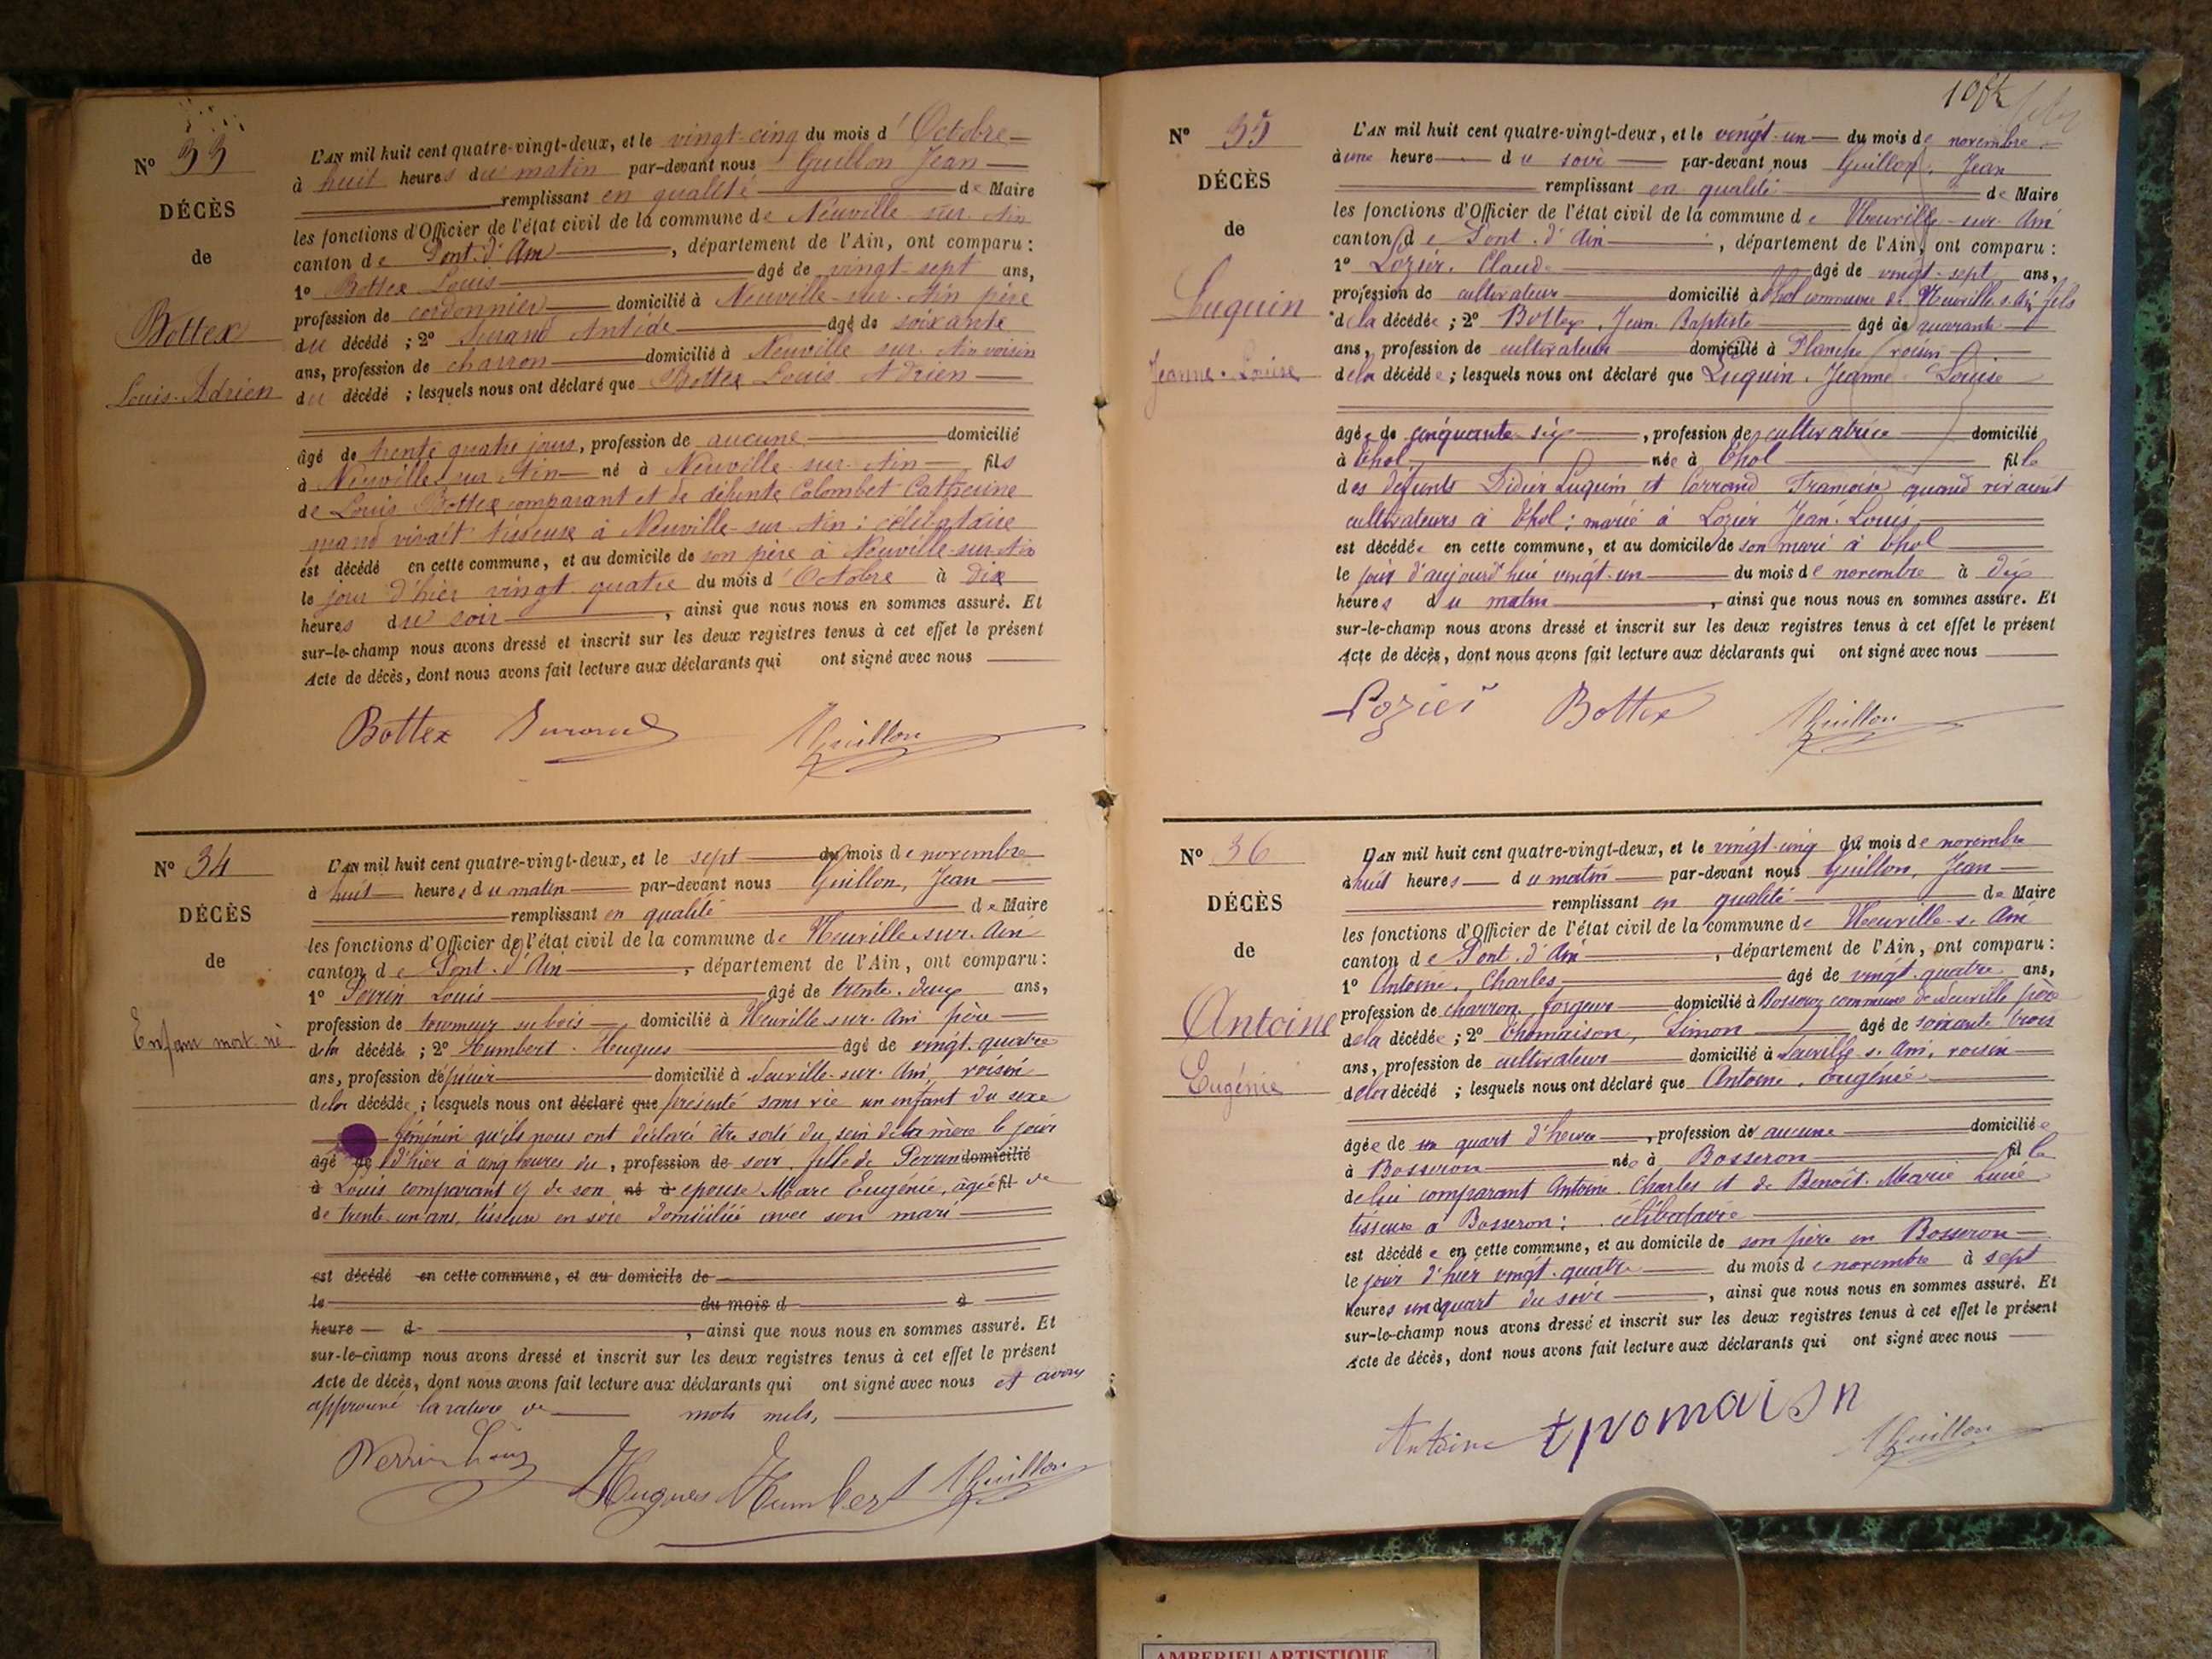 N° 33
DÉCÈS
de
Bottex
Louis-Adrien
L'AN mil huit cent quatre-vingt-deux, et le vingt-cinq du mois d'Octobre
à huit heures du matin par-devant nous Guillon Jean
remplissant en qualité de Maire
les fonctions d'Officier de l'état civil de la commune de Neuville-sur-Ain
canton de Pont-d'Ain, département de l'Ain, ont comparu :
1° Bottex Louis âgé de vingt-sept ans,
profession de cordonnier domicilié à Neuville-sur-Ain père
du décédé ; 2° Durand Antide âgé de soixante
ans, profession de charron domicilié à Neuville sur Ain voisin
du décédé ; lesquels nous ont déclaré que Bottex Louis Adrien
âgé de trente quatre jours, profession de aucune domicilié
à Neuville sur Ain né à Neuville-sur-Ain fils
de Louis Bottex comparant et de défunte Colombet Catherine
quand vivait tisseuse à Neuville-sur-Ain : célibataire
est décédé en cette commune, et au domicile de son père à Neuville-sur-Ain
le jour d'hier vingt quatre du mois d'Octobre à dix
heures du soir, ainsi que nous nous en sommes assuré. Et
sur-le-champ nous avons dressé et inscrit sur les deux registres tenus à cet effet le présent
Acte de décès, dont nous avons fait lecture aux déclarants qui ont signé avec nous
Bottex Durand Guillon
N° 34
DÉCÈS
de
Enfant mort-né
L'AN mil huit cent quatre-vingt-deux, et le sept du mois de novembre
à huit heures du matin par-devant nous Guillon, Jean
remplissant en qualité de Maire
les fonctions d'Officier de l'état civil de la commune de Neuville sur Ain
canton de Pont-d'Ain, département de l'Ain, ont comparu :
1° Perrin Louis âgé de trente-deux ans,
profession de tourneur su bois domicilié à Neuville sur Ain père
de la décédée ; 2° Humbert Hugues âgé de vingt-quatre
ans, profession de domicilié à Neuville-sur-Ain, voisin
de la décédée ; lesquels nous ont déclaré que présenté sans vie un enfant du sexe
féminin qu'ils nous ont déclaré être sorti du sein de la mère le jour
âgé de d'hier à cinq heures du, profession de soir, fille de Perrin domicilié
à Louis comparant et de son né à epouse Marc Eugénie, âgée fil de
de trente-un ans, tisseuse en soie domiciliée avec son mari
est décédé en cette commune, et au domicile de
le du mois d à
heure d , ainsi que nous nous en sommes assuré. Et
sur-le-champ nous avons dressé et inscrit sur les deux registres tenus à cet effet le présent
Acte de décès, dont nous avons fait lecture aux déclarants qui ont signé avec nous et avons
approuvé la rature de mots nuls,
Perrin Louis Hugues Humbert Guillon
N° 35
DÉCÈS
de
Luquin
Jeanne-Louise
L'AN mil huit cent quatre-vingt-deux, et le vingt-un du mois de novembre
à une heure du soir par-devant nous Guillon, Jean
remplissant en qualité de Maire
les fonctions d'Officier de l'état civil de la commune de Neuville-sur-Ain
canton de Pont-d'Ain, département de l'Ain, ont comparu :
1° Lozier, Claude âgé de vingt-sept ans,
profession de cultivateur domicilié à Thol commune de Neuville s. Ain fils
de la décédée ; 2° Bottex, Jean Baptiste âgé de quarante
ans, profession de cultivateur domicilié à Planche voisin
de la décédée ; lesquels nous ont déclaré que Luquin, Jeanne Louise
âgée de cinquante-six, profession de cultivatrice domicilié
à Thol née à Thol fille
des défunts Didier Luquin et Corrand Françoise quand vivaient
cultivateurs à Thol ; marié à Lozier Jean-Louis,
est décédée en cette commune, et au domicile de son mari à Thol
le jour d'aujourd'hui vingt-un du mois de novembre à dix
heures du matin, ainsi que nous nous en sommes assuré. Et
sur-le-champ nous avons dressé et inscrit sur les deux registres tenus à cet effet le présent
Acte de décès, dont nous avons fait lecture aux déclarants qui ont signé avec nous
Lozier Bottex Guillon
N° 36
DÉCÈS
de
Antoine
Eugénie
L'AN mil huit cent quatre-vingt-deux, et le vingt-cinq du mois de novembre
à huit heures du matin par-devant nous Guillon, Jean
remplissant en qualité de Maire
les fonctions d'Officier de l'état civil de la commune de Neuville-s. Ain
canton de Pont-d'Ain, département de l'Ain, ont comparu :
1° Antoine, Charles, âgé de vingt-quatre ans,
profession de charron forgeur domicilié à Bosseron commune de Neuville père
de la décédée ; 2° Thomaison, Simon âgé de soixante trois
ans, profession de cultivateur domicilié à Neuville s. Ain, voisin
de la décédé ; lesquels nous ont déclaré que Antoine, Eugénie
âgée de un quart d'heure, profession de aucune domiciliée
à Bosseron née à Bosseron fille
de lui comparant Antoine Charles et de Benoît Marie Lucie
tisseuse à Bosseron ; célibataire
est décédée en cette commune, et au domicile de son père en Bosseron
le jour d'hier vingt-quatre du mois de novembre à sept
heures un quart du soir, ainsi que nous nous en sommes assuré. Et
sur-le-champ nous avons dressé et inscrit sur les deux registres tenus à cet effet le présent
Acte de décès, dont nous avons fait lecture aux déclarants qui ont signé avec nous
Antoine tpomaison Guillon
AMBERIEU ARTISTIQUE